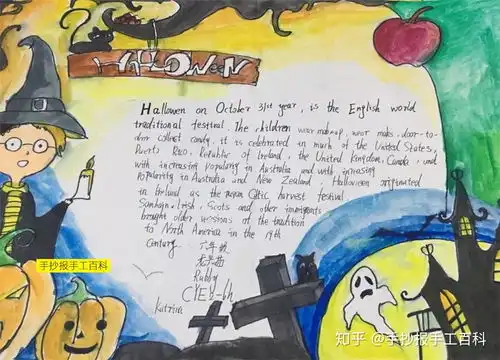 HALLOWEEN
Hallowen on October 31st year, is the English world
traditional festival. The children wear makeup, wear masks, door-to-
door collect candy. it is celebrated in much of the United States,
Puerto Rico, Republic of Ireland, the United Kingdom, Canada, and
with increasing popularity in Australia and with increasing
Popularity in Australia and New Zealand, Halloween originated
in Ireland as the pagan Celtic harvest festival
Samhain, Irish, Scots and other immigrants
brought older versions of the tradition
to North America in the 19th
century.
Rubby
Katrina
手抄报手工百科
知乎 @手抄报手工百科